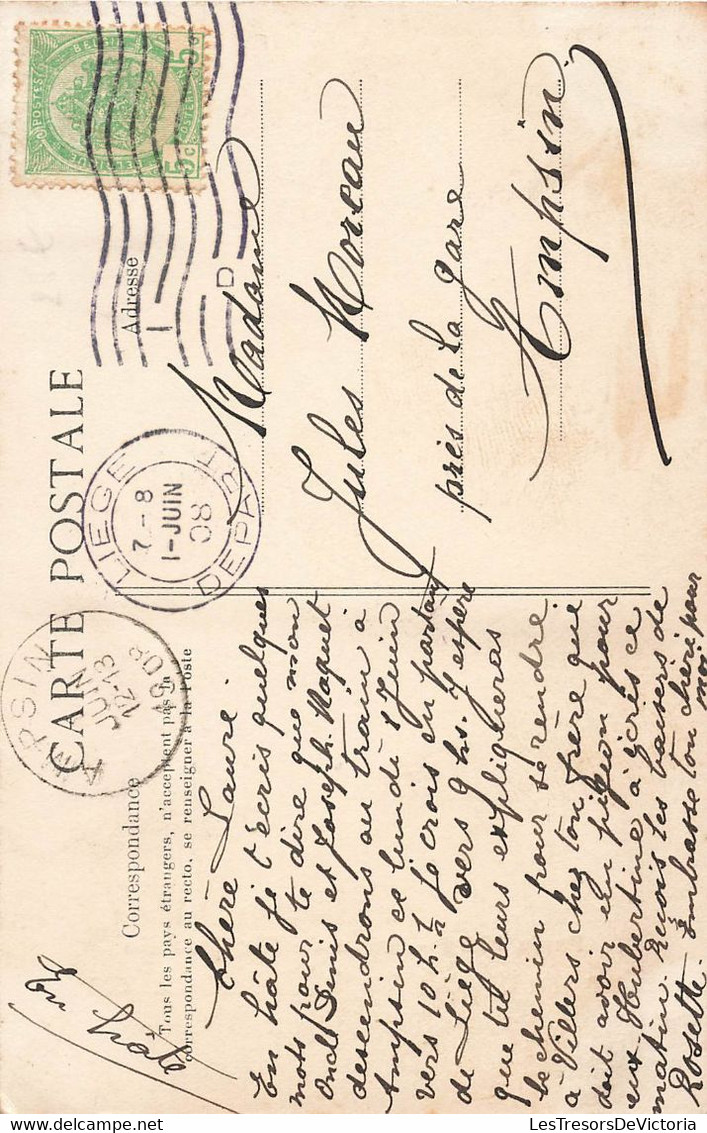 CARTE POSTALE
Correspondance
Adresse
Tous les pays étrangers, n'acceptent pas la
correspondance au recto, se renseigner à la Poste
En hâte
Chère Laure
En hâte je t'écris quelques
mots pour te dire que mon
Oncle Denis et Joseph Naquet
descendrons au train à
Ampsin ce lundi 1 Juin
vers 10 h. ½ je crois en partant
de Liège vers 9 hs. J'espère
que tu leurs expliqueras
le chemin pour se rendre
à Villers chez ton frère que
doit avoir un pigeon pour
eux. Hubertine a écris ce
matin. Reçois les baisers de
Rosette. Embrasse ton chéri pour
moi
Madame
Jules Moreau
près de la gare
Ampsin
LIEGE
7-8
1-JUIN
08
DEPART
AMPSIN
JUIN
12-13
1908
POSTES
BELGIQUE
5c
5c
LesTresorsDeVictoria